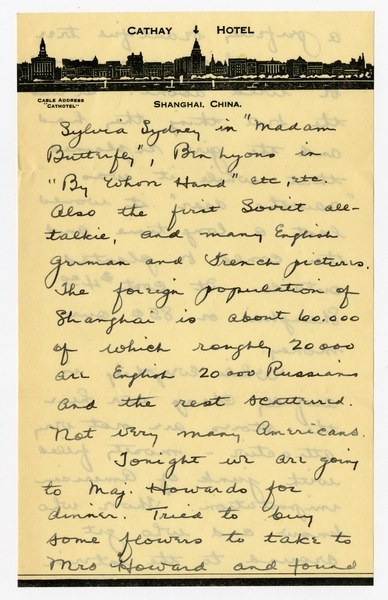 CATHAY HOTEL
CABLE ADDRESS
"CATHOTEL"
SHANGHAI, CHINA.
Sylvia Sydney in "Madam
Butterfly", Ben Lyons in
"By Whon Hand" etc, etc.
Also the first Soviet all-
talkie, and many English
german and French pictures.
The foreign population of
Shanghai is about 60.000
of which roughly 20000
are English 20000 Russians
and the rest scattered.
Not very many Americans.
Tonight we are going
to Maj. Howards for
dinner. Tried to buy
some flowers to take to
Mrs Howard and found